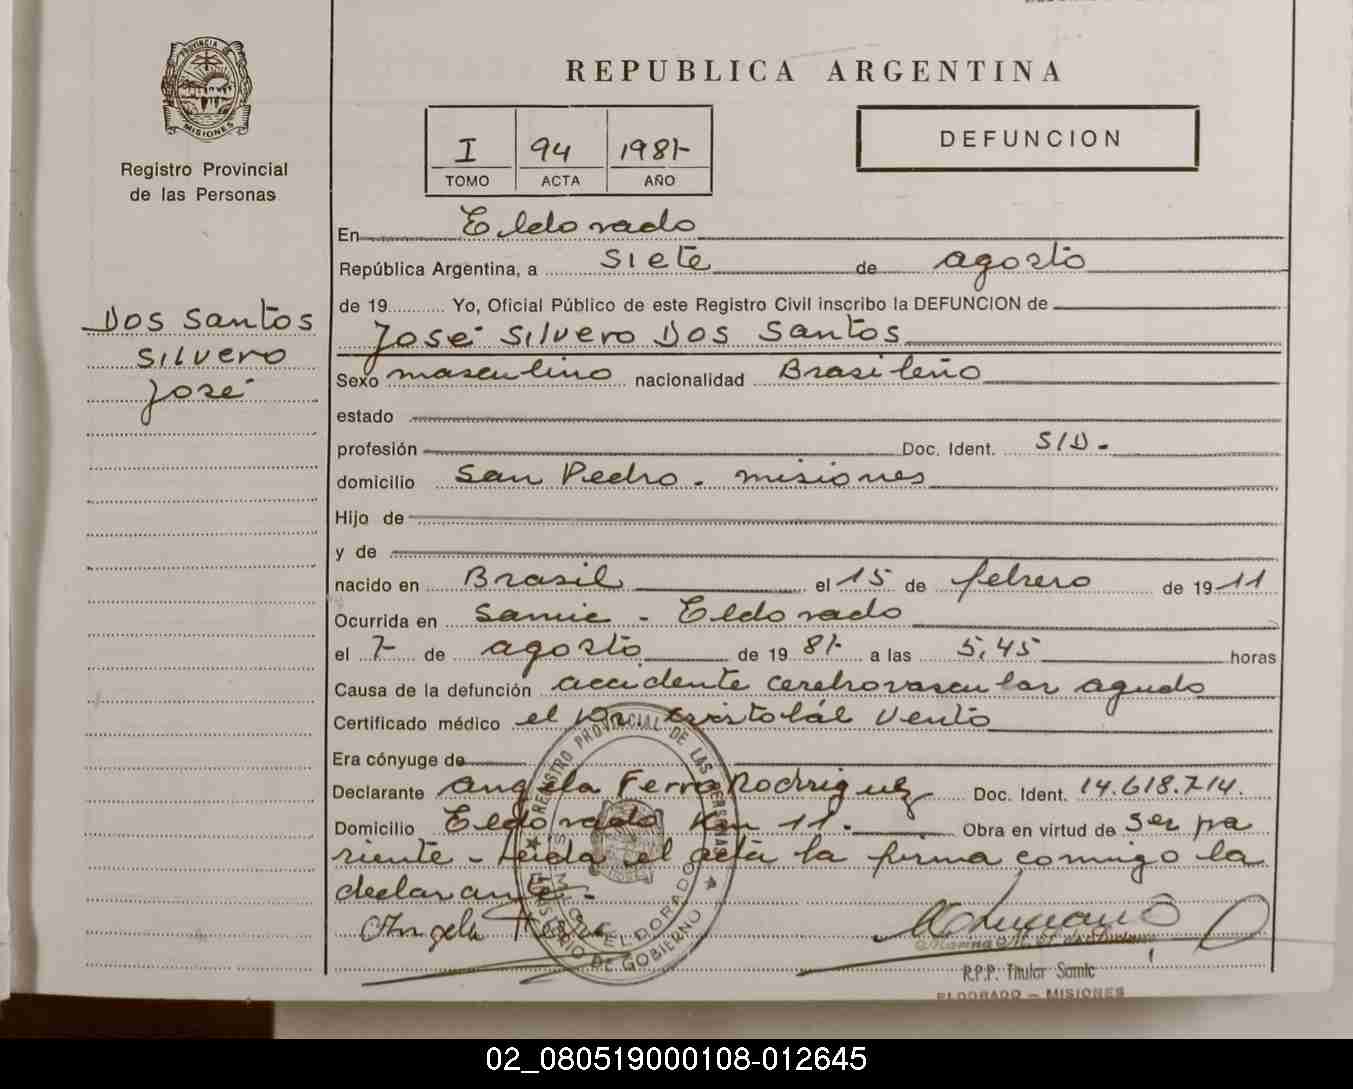 PROVINCIA DE
MISIONES
Registro Provincial
de las Personas
Dos Santos
Silvero
José
REPUBLICA ARGENTINA
I 94 1981-
TOMO ACTA AÑO
DEFUNCION
En Eldorado
República Argentina, a siete de agosto
de 19 Yo, Oficial Público de este Registro Civil inscribo la DEFUNCION de
José Silvero Dos Santos
Sexo masculino nacionalidad Brasileño
estado
profesión Doc. Ident. S/D-
domicilio San Pedro - misiones
Hijo de
y de
nacido en Brasil el 15 de febrero de 1911
Ocurrida en Samic - Eldorado
el 7- de agosto de 19 81- a las 5,45 horas
Causa de la defunción accidente cerebrovascular agudo
Certificado médico el Dr. Cristobál Vento
Era cónyuge de
Declarante Angela Ferra Rodriguez Doc. Ident. 14.618.714.
Domicilio Eldorado Km 11.- Obra en virtud de ser pa
riente - Leida el acta la firma comigo la
declarante-
Angela
REGISTRO PROVINCIAL DE LAS PERSONAS
MINISTERIO DE GOBIERNO
ELDORADO
R.P.P. Titular Samic
ELDORADO - MISIONES
02_080519000108-012645